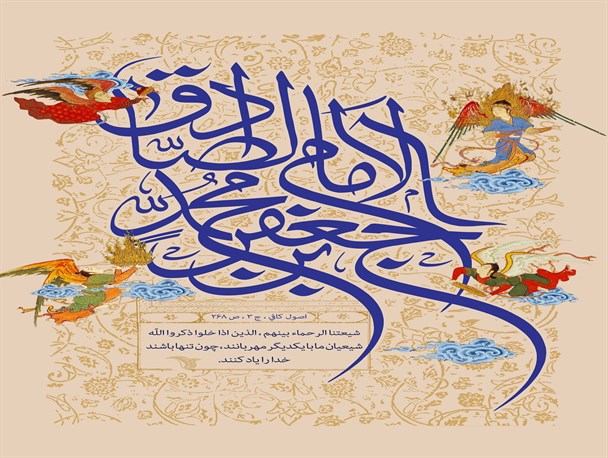 الامام الصادق
جعفر بن محمد
اصول کافی ، ج ۳ ، ص ۲۶۸
شیعتنا الرحماء بینهم ، الذین اذا خلوا ذکروا الله
شیعیان ما با یکدیگر مهربانند ، چون تنها باشند
خدا را یاد کنند.